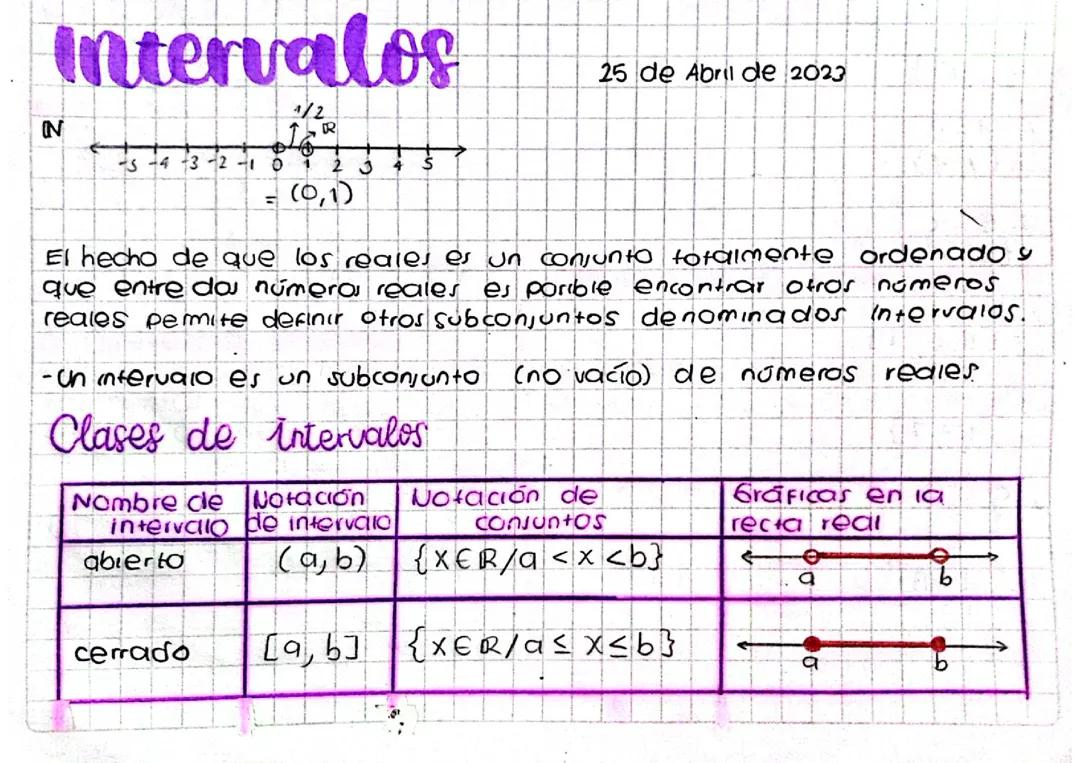 Intervalos
25 de Abril de 2023
1/2
ℕ
ℝ
-5 -4 -3 -2 -1 0 1 2 3 4 5
= (0,1)
El hecho de que los reales es un conjunto totalmente ordenado y
que entre dos números reales es posible encontrar otros números
reales permite definir otros subconjuntos denominados intervalos.
-Un intervalo es un subconjunto (no vacío) de números reales
Clases de intervalos
Nombre de intervalo
Notación de intervalo
Notación de conjuntos
Gráficas en la recta real
abierto (a,b) {x∈ℝ/a < x < b}
a b
cerrado [a,b] {x∈ℝ/a ≤ x ≤ b}
a b